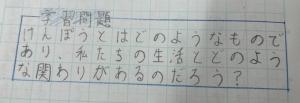 学習問題
けんぽうとはどのようなもので
あり、私たちの生活とどのよう
な関わりがあるのだろう？